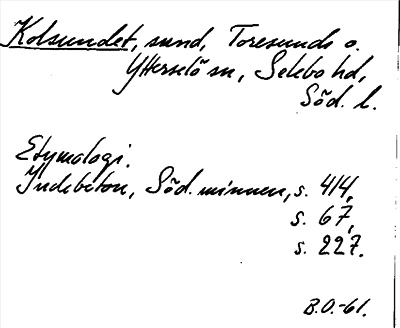 Kolsundet, sund, Toresunds o.
Ytterselö sn, Selebo hd,
Söd. l.
Etymologi.
Indebetou, Söd. minnen, s. 414,
s. 67,
s. 227.
B.O.-61.